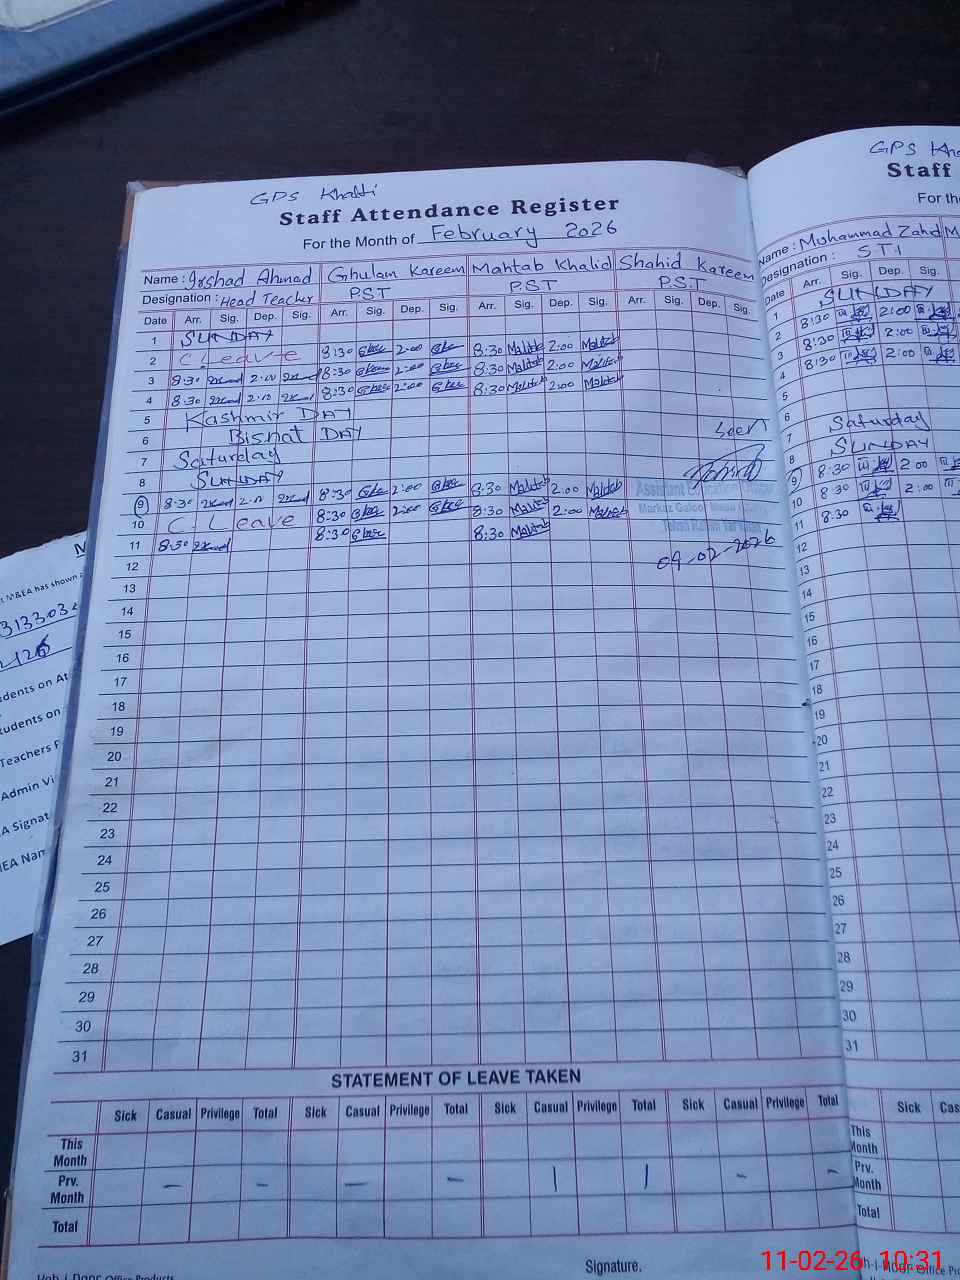 GPS Khalti
Staff Attendance Register
For the Month of February 2026
Name : Irshad Ahmad Ghulam Kareem Mahtab Khalid Shahid Kareem
Designation : Head Teacher PST PST PST
Date Arr. Sig. Dep. Sig. Arr. Sig. Dep. Sig. Arr. Sig. Dep. Sig. Arr. Sig. Dep. Sig.
1 SUNDAY
2 C. Leave 8:30 2:00 8:30 Mahtab 2:00 Mahtab
3 8:30 2:00 8:30 2:00 8:30 Mahtab 2:00 Mahtab
4 8:30 2:00 8:30 2:00 8:30 Mahtab 2:00 Mahtab
5 Kashmir DAY
6 Bisnat DAY
7 Saturday
8 SUNDAY
9 8:30 2:00 8:30 2:00 8:30 Mahtab 2:00 Mahtab
10 C. Leave 8:30 2:00 8:30 Mahtab 2:00 Mahtab
11 8:30 8:30 8:30 Mahtab
Seen
Assistant Education Officer
Markaz
09-02-2026
12
13
14
15
16
17
18
19
20
21
22
23
24
25
26
27
28
29
30
31
STATEMENT OF LEAVE TAKEN
Sick Casual Privilege Total Sick Casual Privilege Total Sick Casual Privilege Total Sick Casual Privilege Total
This Month
Prv. Month — — — — | | — —
Total
Signature.
GPS Kha
Staff
For th
Name : Muhammad Zahid M
Designation : STI
Date Arr. Sig. Dep. Sig.
1 SUNDAY
2 8:30 2:00
3 8:30 2:00
4 8:30 2:00
5
6
7 Saturday
8 SUNDAY
9 8:30 2:00
10 8:30 2:00
11 8:30
12
13
14
15
16
17
18
19
20
21
22
23
24
25
26
27
28
29
30
31
Sick Cas
This Month
Prv. Month
Total
Office Pro
M&EA has shown
313303
udents on At
tudents on
Teachers P
Admin Vi
A Signat
EA Nam
Office Products
11-02-26 10:31